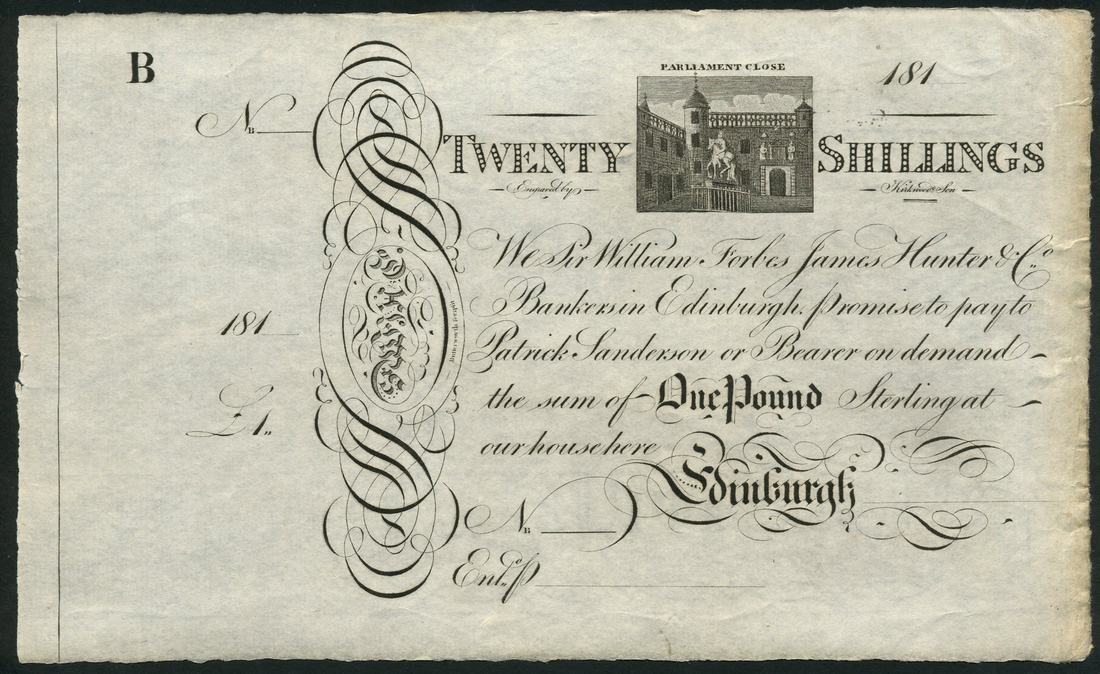 B
PARLIAMENT CLOSE
181
No. B
TWENTY SHILLINGS
Engraved by Kirkwood & Son
We Sir William Forbes James Hunter & Co.
Bankers in Edinburgh, promise to pay to
181
Butterworth fecit 1801
Patrick Sanderson or Bearer on demand
£1,,
the sum of One Pound Sterling at
our house here
Edinburgh
No. B
Entd. p